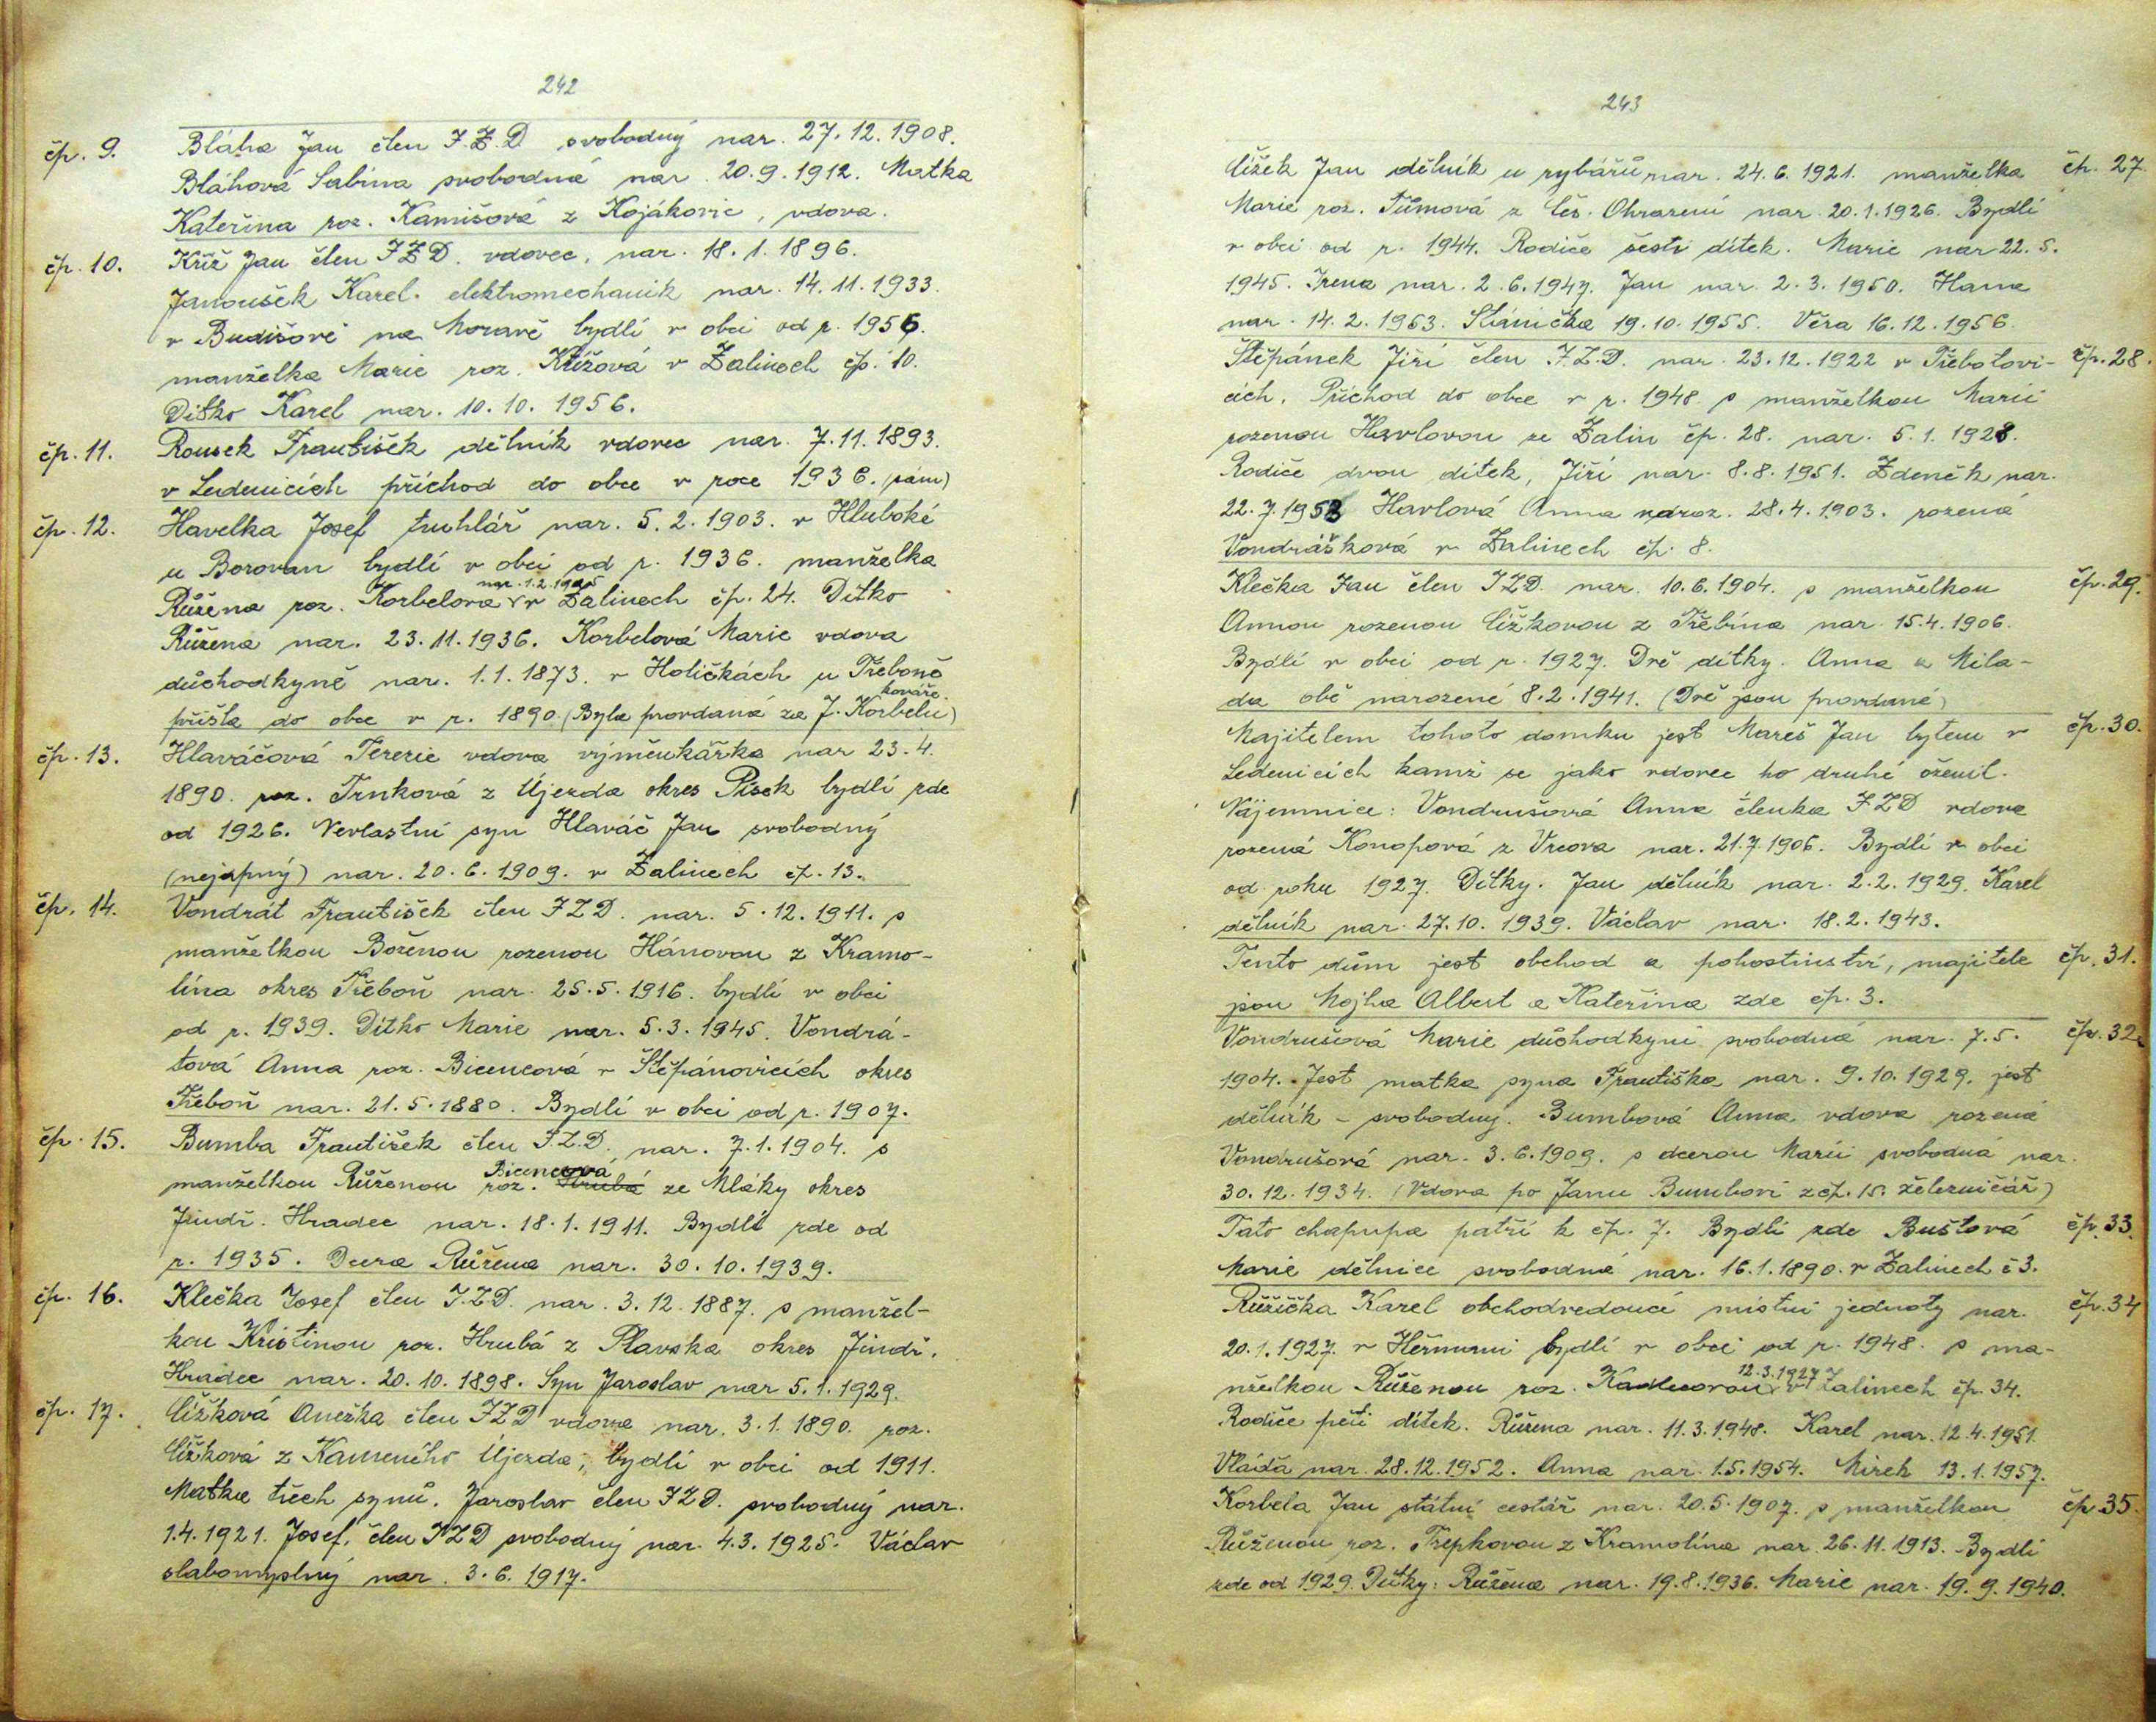 242
čp. 9. Bláha Jan člen J.Z.D svobodný nar. 27.12.1908.
Bláhová Sabina svobodná nar. 20.9.1912. Matka
Kateřina roz. Kamišová z Kojákovic, vdova.
čp. 10. Kříž Jan člen JZD. vdovec, nar. 18.1.1896.
Janoušek Karel. elektromechanik nar. 14.11.1933.
v Budišově na Moravě bydlí v obci od r. 1956.
manželka Marie roz. Křížová v Zalinech čp. 10.
Dítko Karel nar. 10.10.1956.
čp. 11. Rousek František dělník vdovec nar. 7.11.1893.
v Ledenicích příchod do obce v roce 1936. (sám)
čp. 12. Havelka Josef truhlář nar. 5.2.1903. v Hluboké
u Borovan bydlí v obci od r. 1936. manželka
nar. 1.2.1905
Růžena roz. Korbelova v Zalinech čp. 24. Dítko
Růžena nar. 23.11.1936. Korbelová Marie vdova
důchodkyně nar. 1.1.1873. v Holičkách u Třeboně
kováře.
přišla do obce v r. 1890. (Byla provdaná za J. Korbelu)
čp. 13. Hlaváčová Terezie vdova výměnkářka nar 23.4.
1890. roz. Trnková z Újezda okres Písek bydlí zde
od 1926. Nevlastní syn Hlaváč Jan svobodný
(nejapný) nar. 20.6.1909. v Zalinech čp. 13.
čp. 14. Vondrát František člen JZD. nar. 5.12.1911. s
manželkou Boženou rozenou Hánovou z Kramo-
lína okres Třeboň nar. 25.5.1916. bydlí v obci
od r. 1939. Dítko Marie nar. 5.3.1945. Vondrá-
tová Anna roz. Bicencová v Štěpánovicích okres
Třeboň nar. 21.5.1880. Bydlí v obci od r. 1907.
čp. 15. Bumba František člen J.Z.D. nar. 7.1.1904. s
Bicencová
manželkou Růženou roz. Hrubá ze Mláky okres
Jindř. Hradec nar. 18.1.1911. Bydlí zde od
r. 1935. Dcera Růžena nar. 30.10.1939.
čp. 16. Klečka Josef člen J.Z.D. nar. 3.12.1887. s manžel-
kou Kristinou roz. Hrubá z Plavska okres Jindř.
Hradec nar. 20.10.1898. Syn Jaroslav nar 5.1.1929.
čp. 17. Čížková Anežka člen JZD vdova nar. 3.1.1890. roz.
Čížková z Kameného Újezda, bydlí v obci od 1911.
Matka třech synů. Jaroslav člen JZD. svobodný nar.
1.4.1921. Josef. člen JZD svobodný nar. 4.3.1925. Václav
slabomyslný nar. 3.6.1917.
243
Čížek Jan dělník u rybářů nar. 24.6.1921. manželka čp. 27
Marie roz. Tůmová z Čes. Ohrazení nar. 20.1.1926. Bydlí
v obci od r. 1944. Rodiče šesti dítek. Marie nar 22.5.
1945. Irena nar. 2.6.1947. Jan nar. 2.3.1950. Hana
nar. 14.2.1953. Stánička 19.10.1955. Věra 16.12.1956.
Štěpánek Jiří člen J.Z.D. nar. 23.12.1922 v Třebotovi- čp. 28.
cích. Příchod do obce v r. 1948 s manželkou Marií
rozenou Havlovou ze Zalin čp. 28. nar. 5.1.1928.
Rodiče dvou dítek, Jiří nar. 8.8.1951. Zdeněk nar.
22.7.1953 Havlová Anna nar. 28.4.1903. rozená
Vondrášková v Zalinech čp. 8.
Klečka Jan člen JZD. nar. 10.6.1904. s manželkou čp. 29.
Annou rozenou Čížkovou z Třebína nar. 15.4.1906.
Bydlí v obci od r. 1927. Dvě dítky. Anna a Mila-
da obě narozené 8.2.1941. (Dvě jsou provdané)
Majitelem tohoto domku jest Mareš Jan bytem v čp. 30.
Ledenicích kamž se jako vdovec ho druhé oženil.
Nájemnice: Vondrušová Anna členka JZD vdova
rozená Konopová z Vrcova nar. 21.7.1906. Bydlí v obci
od roku 1927. Dítky. Jan dělník nar. 2.2.1929. Karel
dělník nar. 27.10.1939. Václav nar. 18.2.1943.
Tento dům jest obchod a pohostinství, majitele čp. 31.
jsou Mojha Albert a Kateřina zde čp. 3.
Vondrušová Marie důchodkyní svobodná nar. 7.5. čp. 32.
1904. Jest matka syna Františka nar. 9.10.1929. jest
dělník - svobodný. Bumbová Anna vdova rozená
Vondrušová nar. 3.6.1909. s dcerou Marií svobodná nar.
30.12.1934. (Vdova po Janu Bumbovi z čp. 15. železničář)
Tato chalupa patří k čp. 7. Bydlí zde Buštová čp. 33.
Marie dělnice svobodná nar. 16.1.1890. v Zalinech č 3.
Růžička Karel obchodvedoucí místní jednoty nar. čp. 34
20.1.1927. v Heřmani bydlí v obci od r. 1948. s ma-
12.3.1927
nželkou Růženou roz. Kadlecovou v Zalinech čp. 34.
Rodiče pěti dítek. Růžena nar. 11.3.1948. Karel nar. 12.4.1951.
Vláďa nar. 28.12.1952. Anna nar. 1.5.1954. Mirek 13.1.1957.
Korbela Jan státní cestář nar. 20.5.1907. s manželkou čp 35.
Růženou roz. Trepkovou z Kramolína nar. 26.11.1913. Bydlí
zde od 1929. Dítky: Růžena nar. 19.8.1936. Marie nar. 19.9.1940.